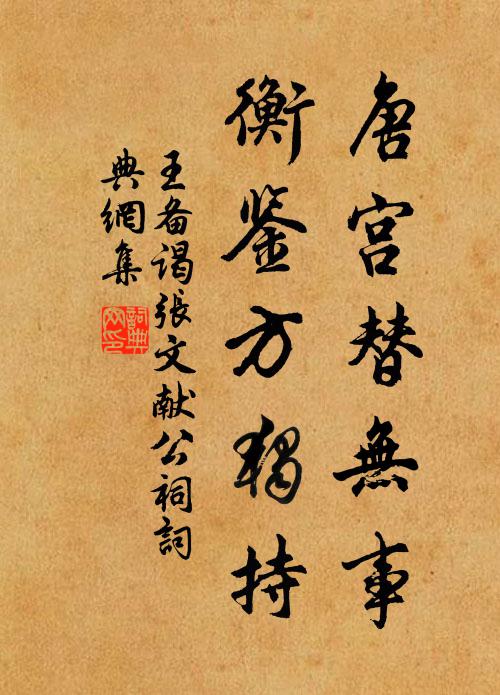 唐宫替無事
衡鉴方独持
王备谒張文献公祠詞
典網集
詞典
网印